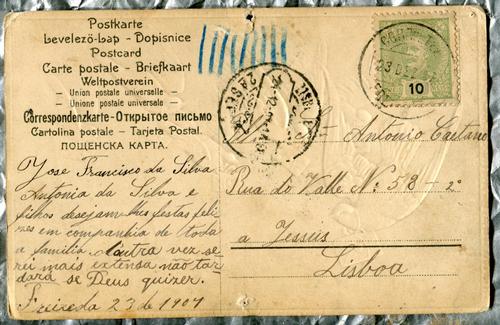 Postkarte
Levelezö-Lap - Dopisnice
Postcard
Carte postale - Briefkaart
Weltpostverein
- Union postale universelle -
- Unione postale universale -
Correspondenzkarte - Открытое письмо
Cartolina postale - Tarjeta Postal.
ПОЩЕНСКА КАРТА.
10
23 DE
2A SE
Antonio Caetano
Rua do Valle Nº 58 - 2º
a Jesseis
Lisboa
Jose Francisco da Silva
Antonia da Silva e
filhos desejam-lhes festas feli
zes em companhia de toda
a familia. Noutra vez se
rei mais extensa não tar
dará se Deus quizer.
Freireda 23 de 1907